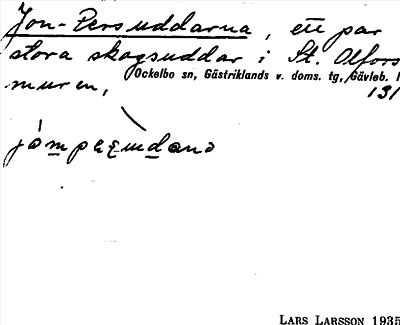 Jon-Persuddarna, ett par
stora skogsuddar i St. Alfors
muren,
Ockelbo sn, Gästriklands v. doms. tg, Gävleb. l
131
LARS LARSSON 1935